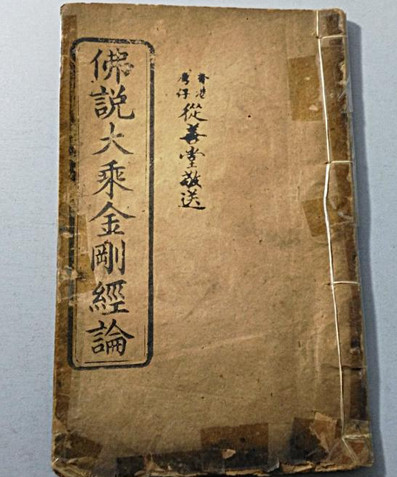 香港
從善堂敬送
佛説大乘金剛經論